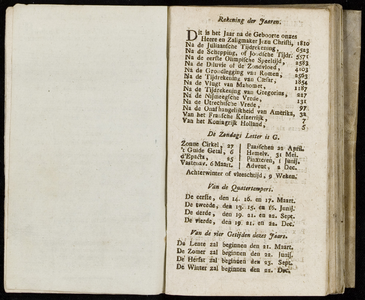 Rekening der Jaaren.
Dit is het Jaar na de Geboorte onzes
Heere en Zaligmaker Jezu Christi, 1810
Na de Juliaansche Tijdrekening, 6523
Na de Schepping, of Joodsche Tijdr. 5571
Na de eerste Olimpische Speeltijd, 2585
Na de Diluvie of de Zondvloed, 4103
Na de Grondlegging van Romen, 2563
Na de Tijdrekening van Cæsar, 1854
Na de Vlugt van Mahomet, 1187
Na de Tijdrekening van Gregorius, 227
Na de Nijmeegsche Vrede, 131
Na de Utrechtsche Vrede, 97
Na de Onafhangelijkheid van Amerika, 32
Van het Fransche Keizerrijk, 7
Van het Koningrijk Holland, 5
De Zondags Letter is G.
Zonne Cirkel, 27 | Paaschen 22 April.
't Gulde Getal, 6 | Hemelv. 31 Mei.
d'Epacta, 25 | Pinxteren, Junij.
Vastenav. 6 Maart. | Advent, 2 Dec.
Achterwinter of vleeschtijd, 9 Weken.
Van de Quatertempers.
De eerste, den 14. 16. en 17. Maart.
De tweede, den 13. 15. en 16. Junij.
De derde, den 19. 21. en 22. Sept.
De vierde, den 19. 21. en 22. Dec.
Van de vier Getijden dezes Jaars.
De Lente zal beginnen den 21. Maart.
De Zomer zal beginnen den 22. Junij.
De Herfst zal beginnen den 23. Sept.
De Winter zal beginnen den 22. Dec.